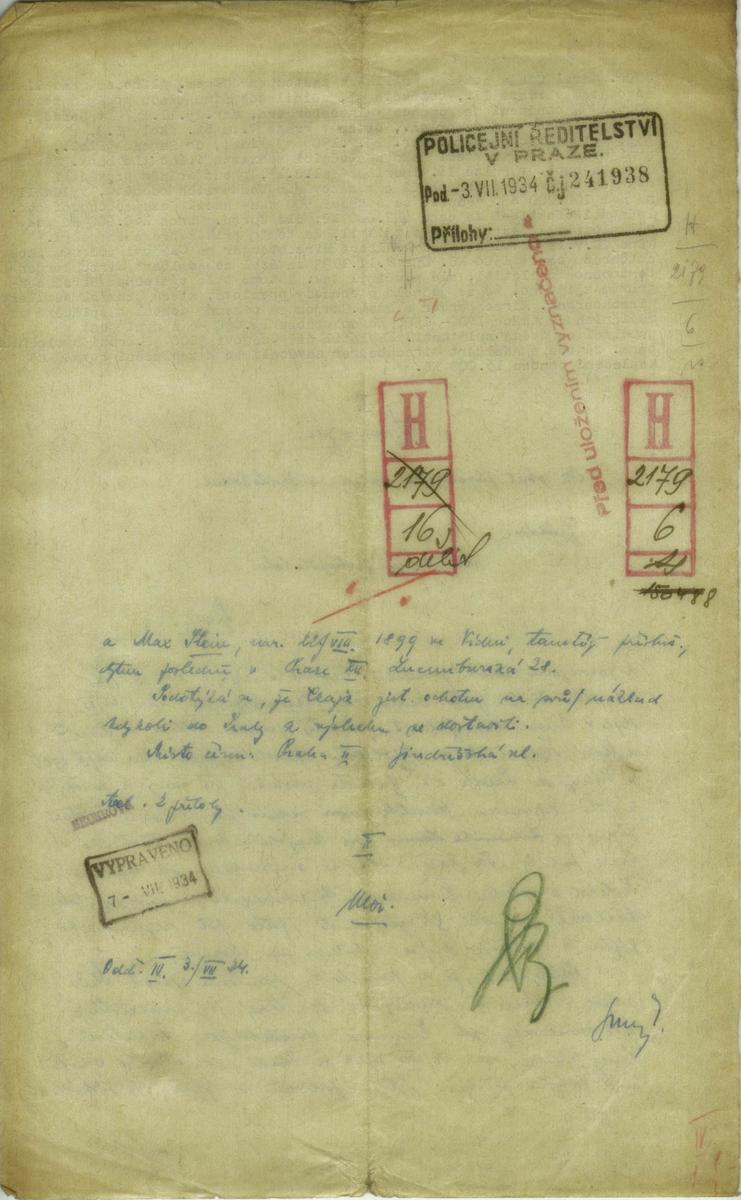 POLICEJNÍ ŘEDITELSTVÍ
V PRAZE.
Pod. -3.VII.1934 čj 241938
Přílohy:
H
2179
6
Před uložením vyznačeno
H
2179
16
H
2179
6
a Max Stein, nar. VIII. 1899 ve Vídni, tamtéž přísluš.,
bytem posledně v Praze XII, Lucemburská 28.
Podotýká se, že Czaja jest ochoten na svůj náklad
kdykoli do Prahy a výslechu se dostaviti.
Místo činu: Praha II Jindřišská ul.
2 přílohy.
VYPRAVENO
7- VII. 1934
II
Odd. IV. 3./VII 34.
IV